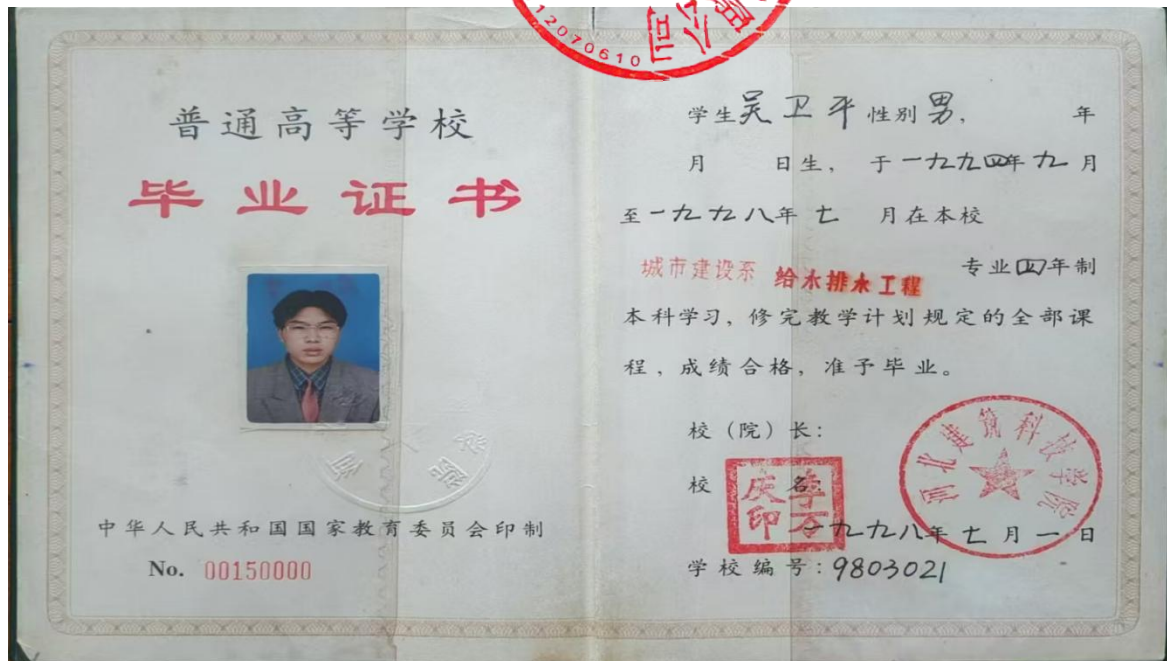 限公司
12070610
普通高等学校
毕业证书
中华人民共和国国家教育委员会印制
No. 00150000
学生吴卫平性别男, 年
月 日生, 于一九九四年九月
至一九九八年七 月在本校
城市建设系 给水排水工程 专业四年制
本科学习, 修完教学计划规定的全部课
程, 成绩合格, 准予毕业。
校(院)长:
校 名:
李万庆印
河北建筑科技学院
一九九八年七月一日
学校编号: 9803021